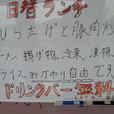 日替ランチ
ひらたけと豚肉炒
ーメン 揚げ物、冷菜、漬物
ライス、おかわり自由です
ドリンクバー無料